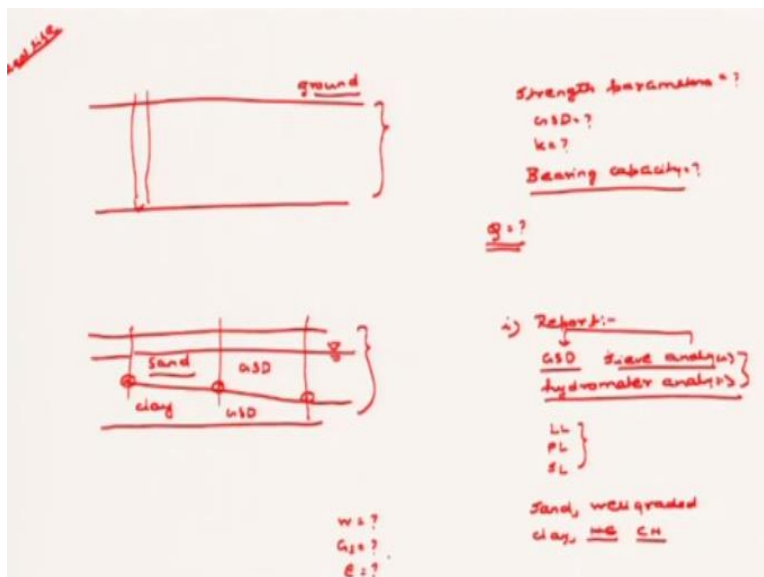 ground
Strength parameters = ?
GSD = ?
k = ?
Bearing capacity = ?
Q = ?
sand GSD
clay GSD
i) Report:-
GSD Sieve analysis
hydrometer analysis
LL
PL
SL
Sand, well graded
clay, CH
w = ?
Gs = ?
e = ?